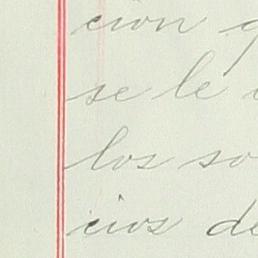 cion
se le
los so
cios de